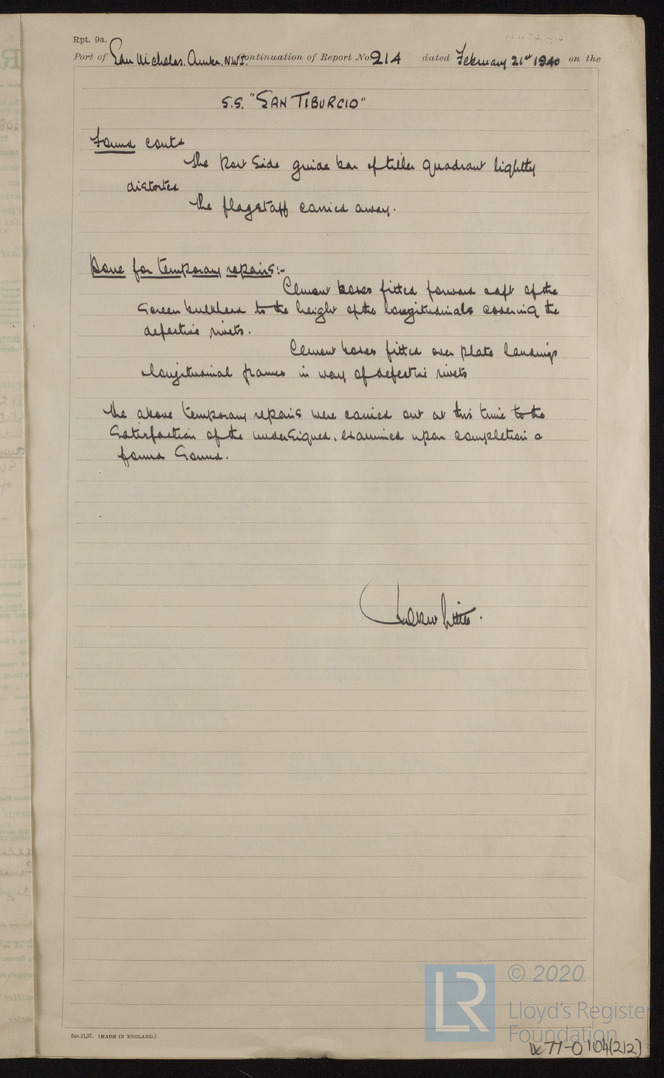 Rpt. 9a.
Port of San Nicholas. Aruba. N.W.I. Continuation of Report No. 214 dated February 21st 1940 on the
S.S. "SAN TIBURCIO"
Found contd
The Port Side guide bar of tiller quadrant lightly
distorted
The flagstaff carried away.
Done for temporary repairs:-
Cement boxes fitted forward & aft of the
Screen bulkhead to the height of the longitudinals covering the
defective rivets.
Cement boxes fitted over plate landings
longitudinal frames in way of defective rivets
The above temporary repairs were carried out at this time to the
Satisfaction of the undersigned, examined upon completion &
found Sound.
© 2020
LR
Lloyd's Register
Foundation
(MADE IN ENGLAND.)
77-0104(2/2)